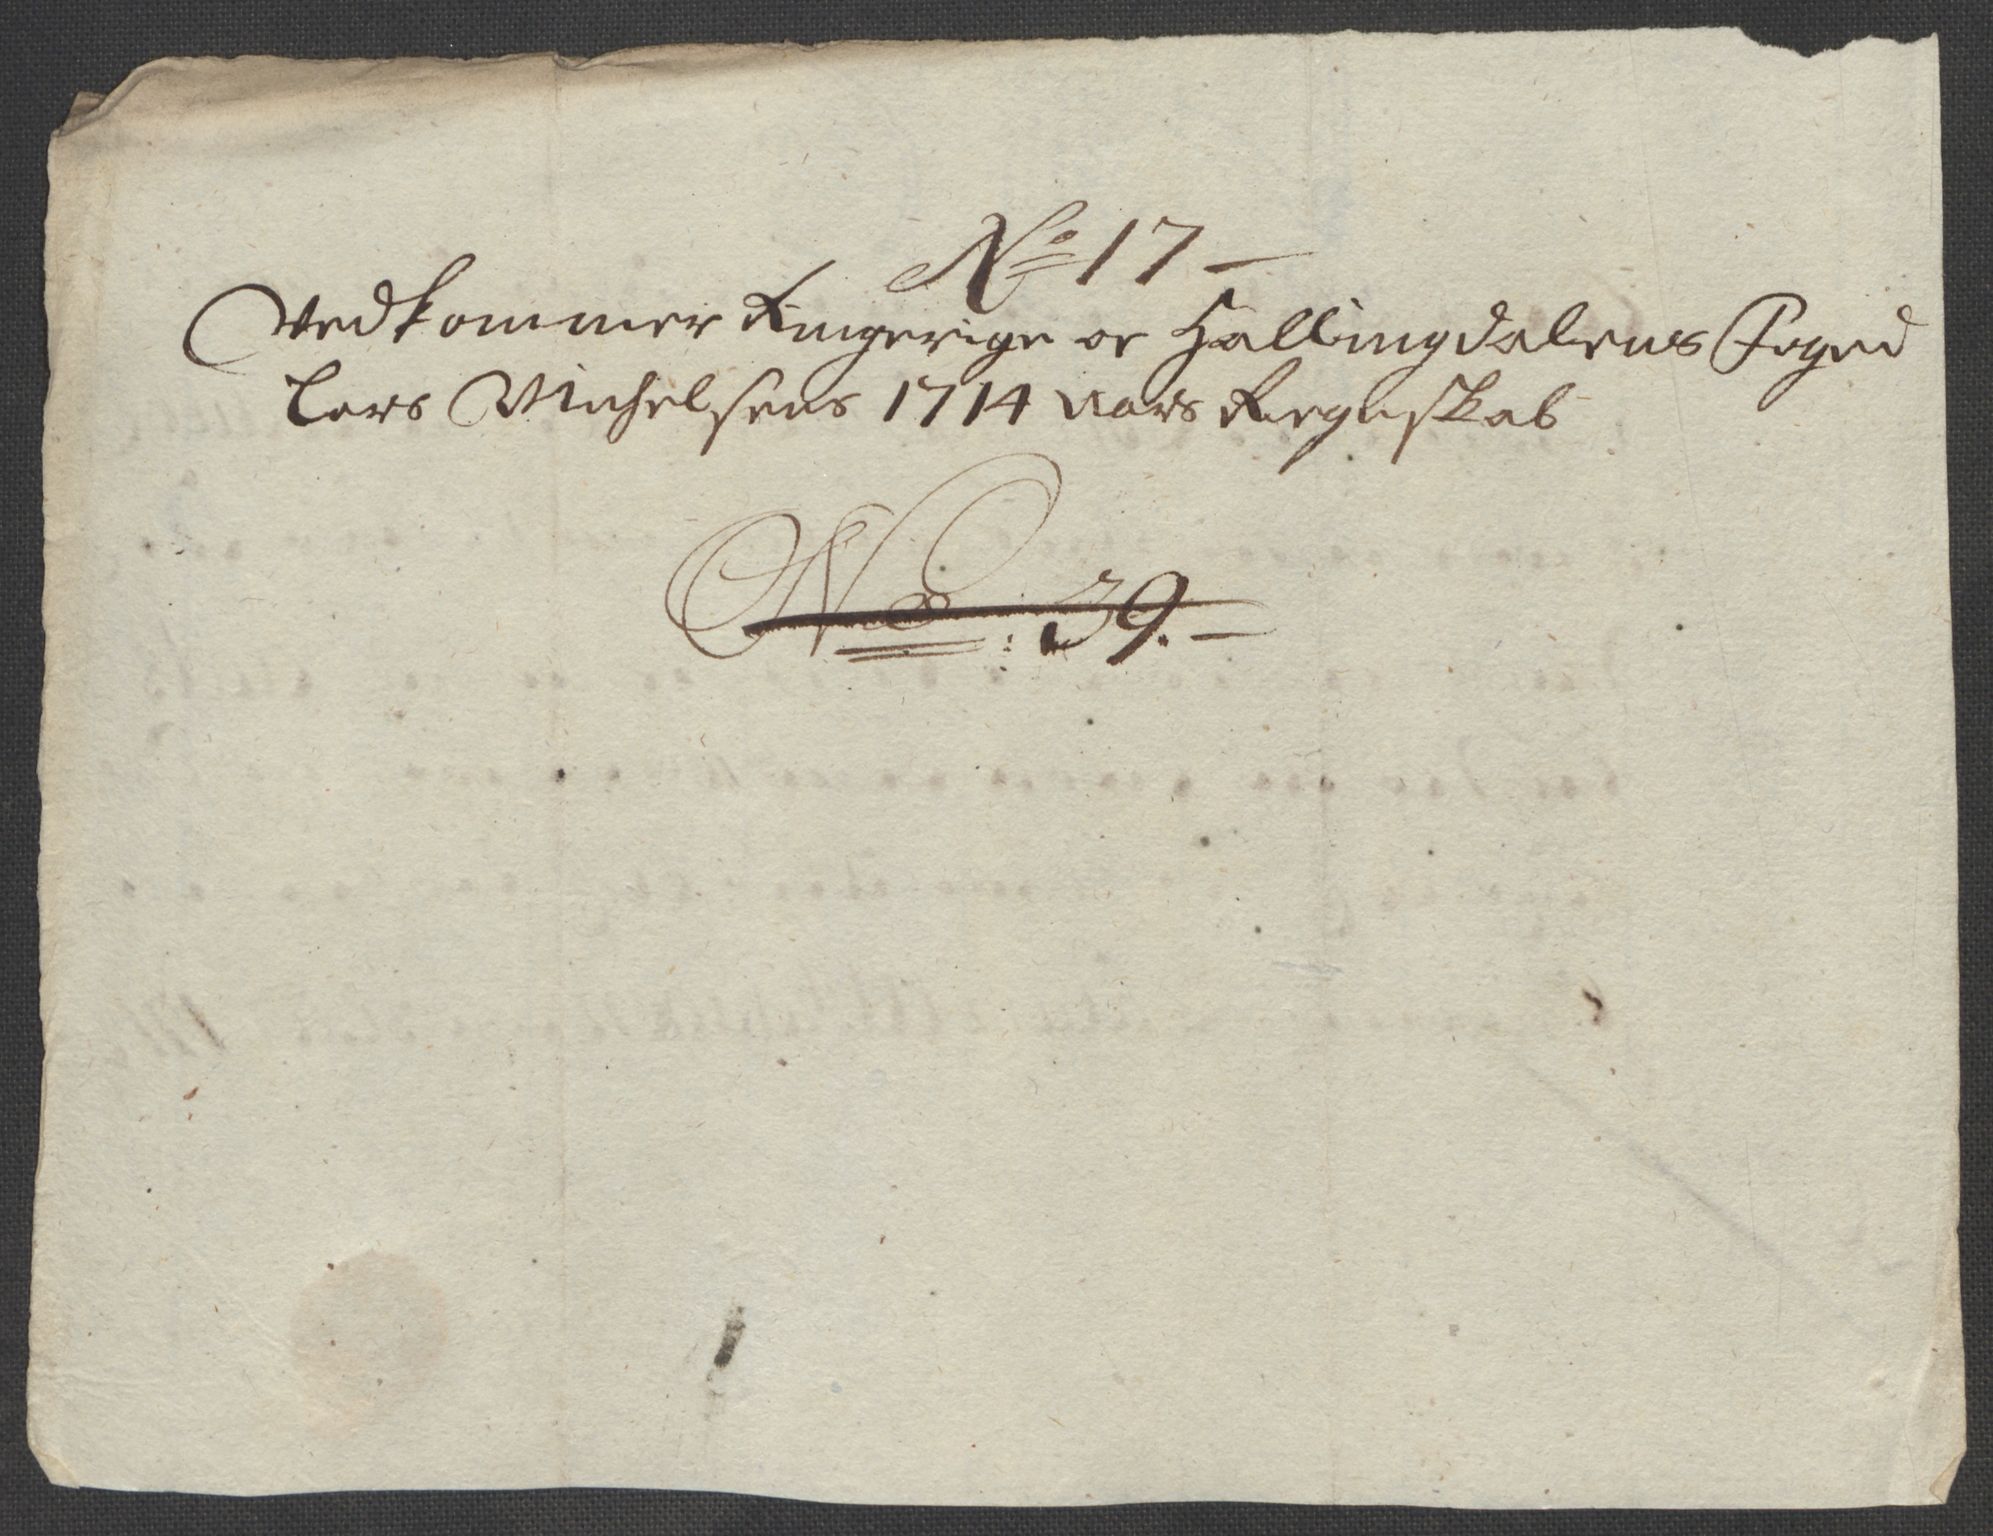 No 17 -
Vedkommer Ringerige oc Hallingdalens Foged
Lars Michelsens 1714 aars Regnskab
No : 39. -